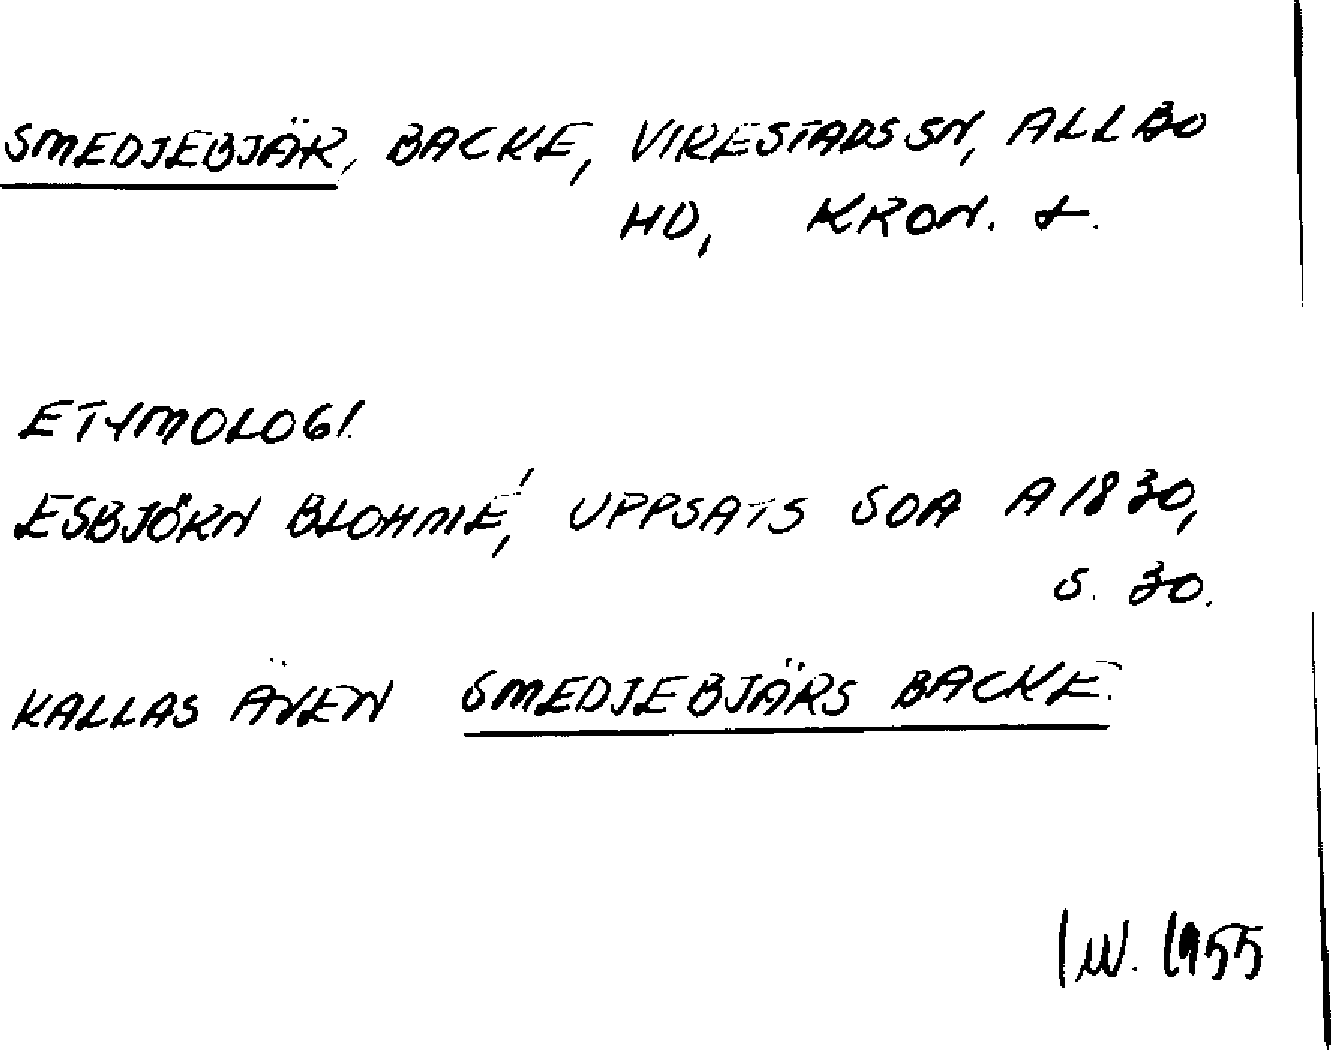 SMEDJEBJÄR, BACKE, VIRESTADS SN, ALLBO
HD, KRON. L.
ETYMOLOGI.
ESBJÖRN BLOHMÉ, UPPSATS SOA A 1830,
S. 30.
KALLAS ÄVEN SMEDJEBJÄRS BACKE.
1955